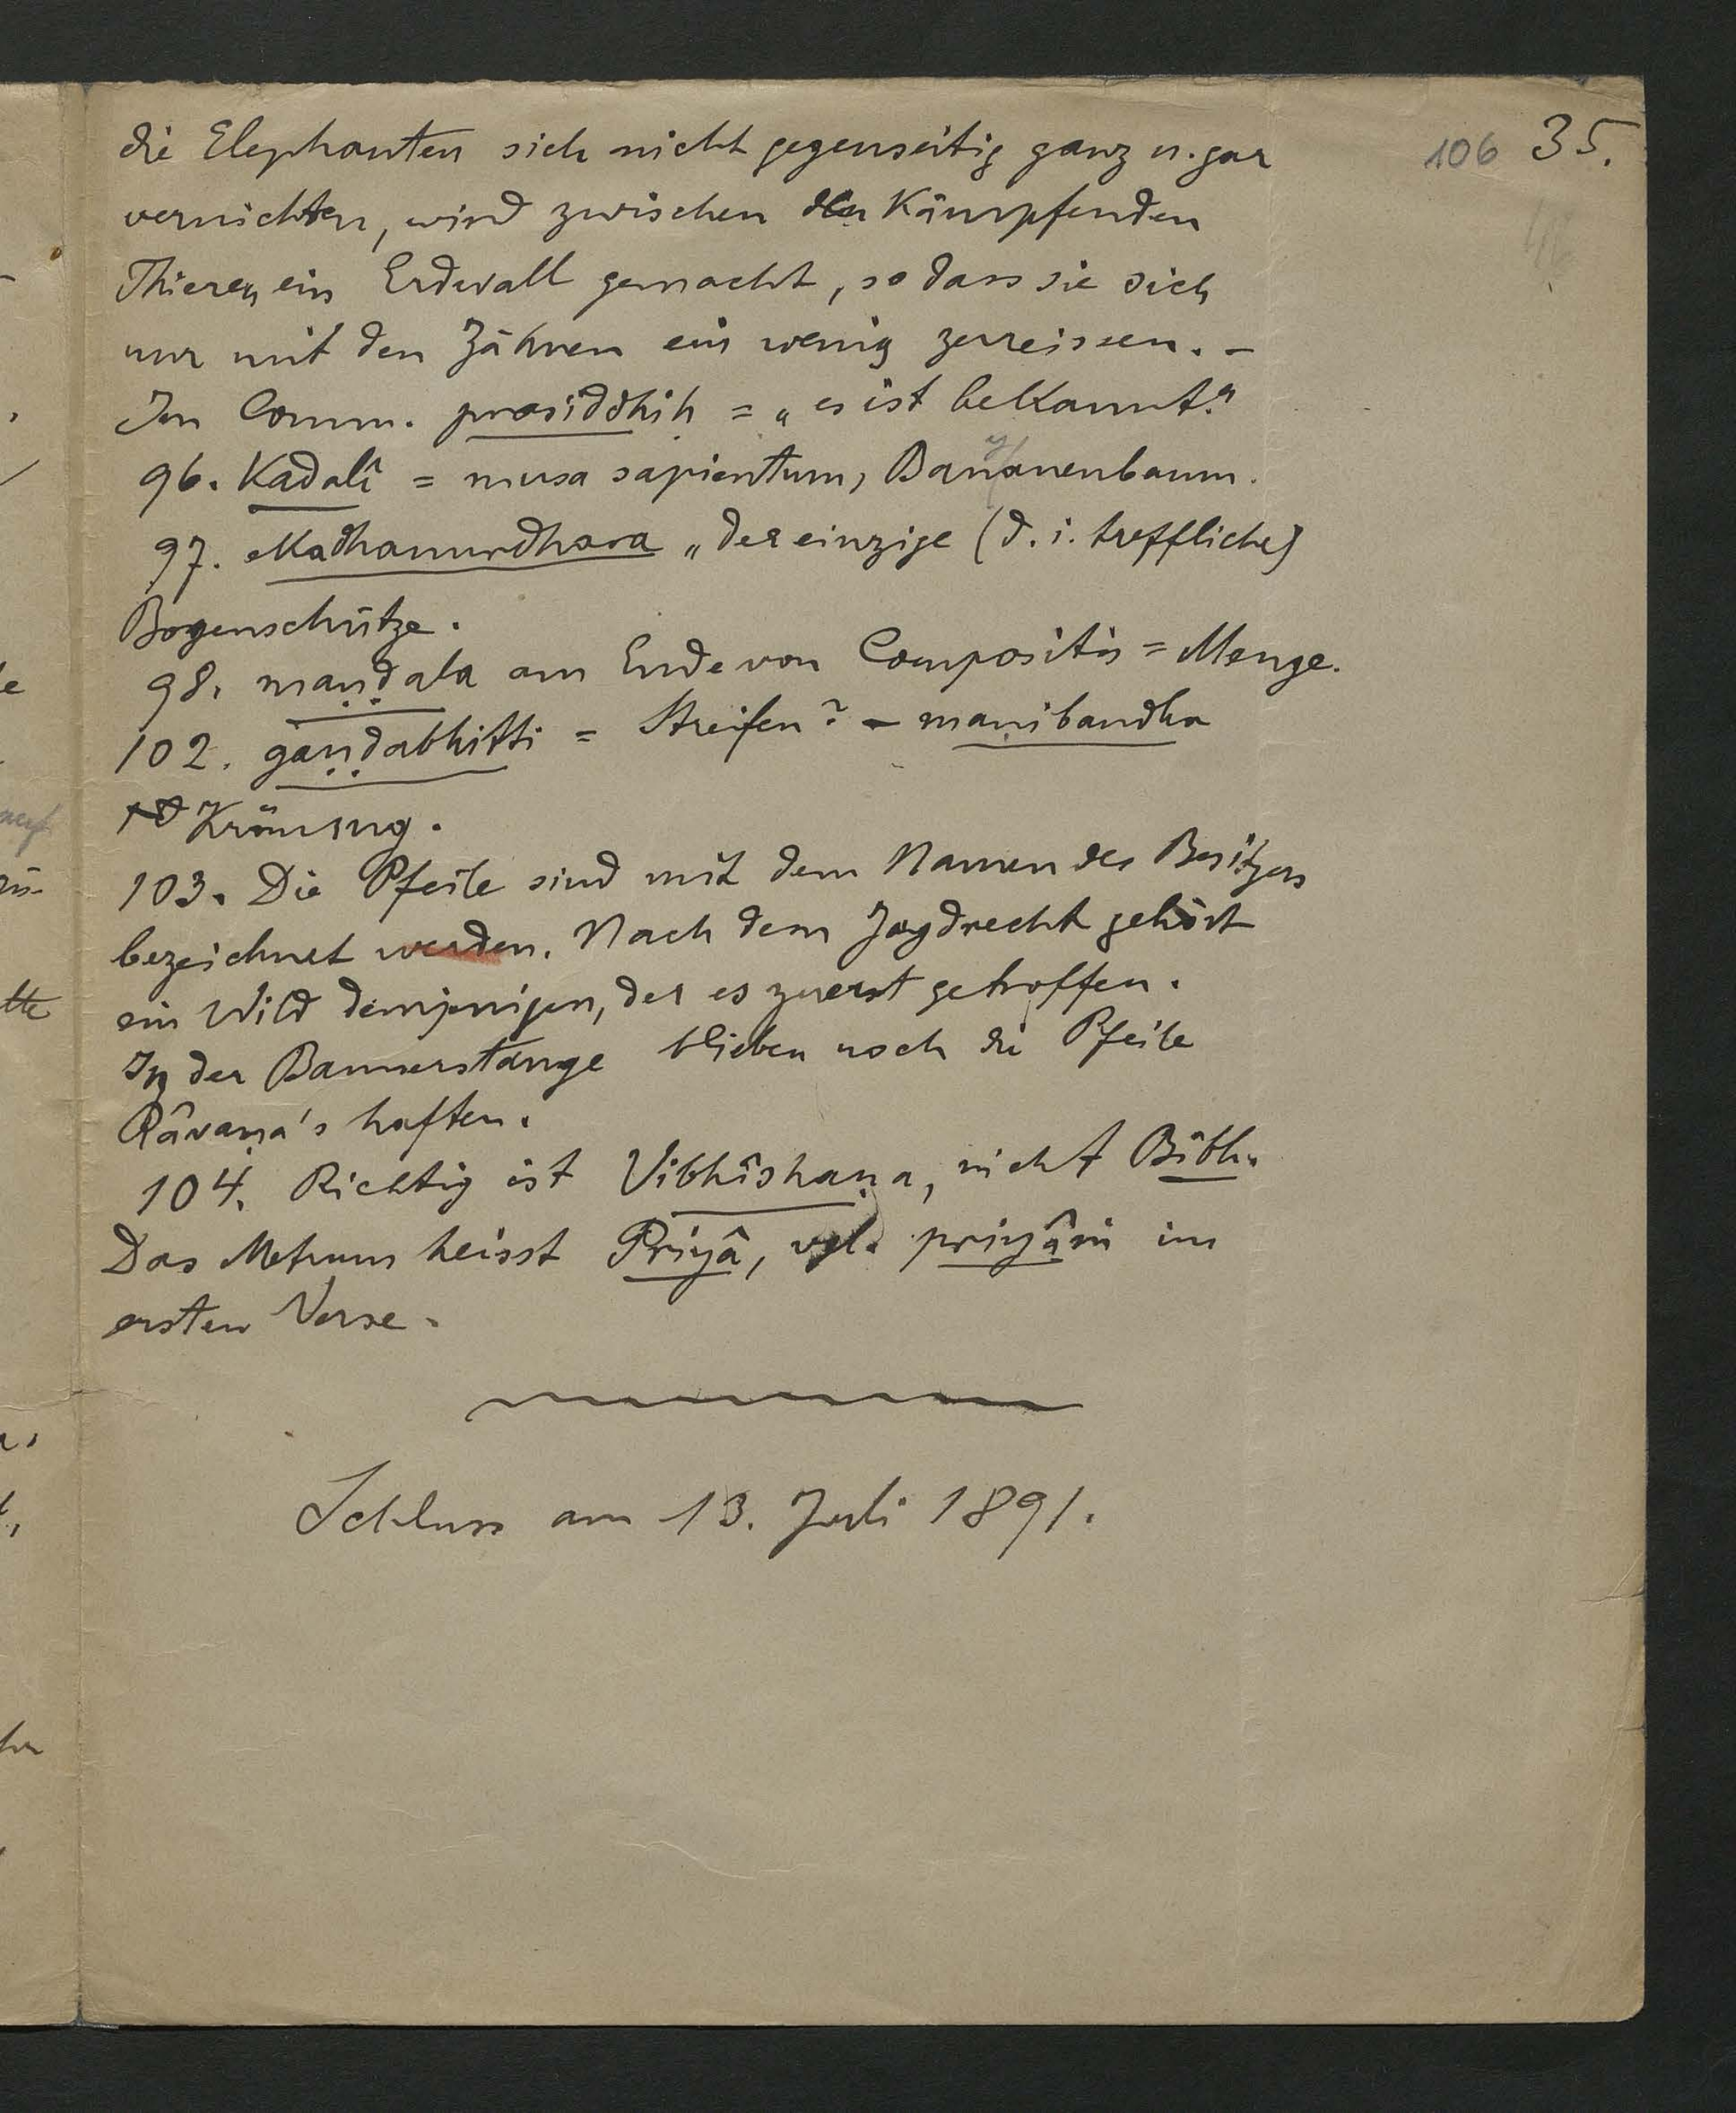 106 35.
die Elephanten sich nicht gegenseitig ganz u. gar
vernichten, wird zwischen den Kämpfenden
Thieren ein Erdwall gemacht, so dass sie sich
nur mit den Zähnen ein wenig zerreissen. –
Im Comm. prasiddhiḥ = „es ist bekannt."
96. Kadalî = musa sapientum, Bananenbaum.
97. ekadhanurdhara „der einzige (d. i. treffliche)
Bogenschütze.
98. maṇḍala am Ende von Compositis = Menge.
102. gaṇḍabhitti = Streifen? – maṇibandha
Krönung.
103. Die Pfeile sind mit dem Namen des Besitzers
bezeichnet werden. Nach dem Jagdrecht gehört
ein Wild demjenigen, der es zuerst getroffen.
In der Bannerstange blieben noch die Pfeile
Râvaṇa's haften.
104. Richtig ist Vibhîshaṇa, nicht Bîbh.
Das Metrum heisst Priyâ, vgl. priyâṇi im
ersten Verse.
Schluss am 13. Juli 1891.